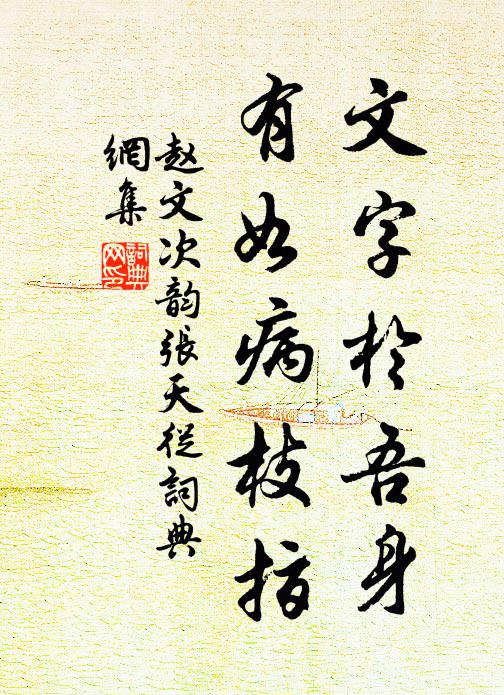 文字於吾身
有如病枝指
赵文次韵張天従詞典
網集
詞典
网印